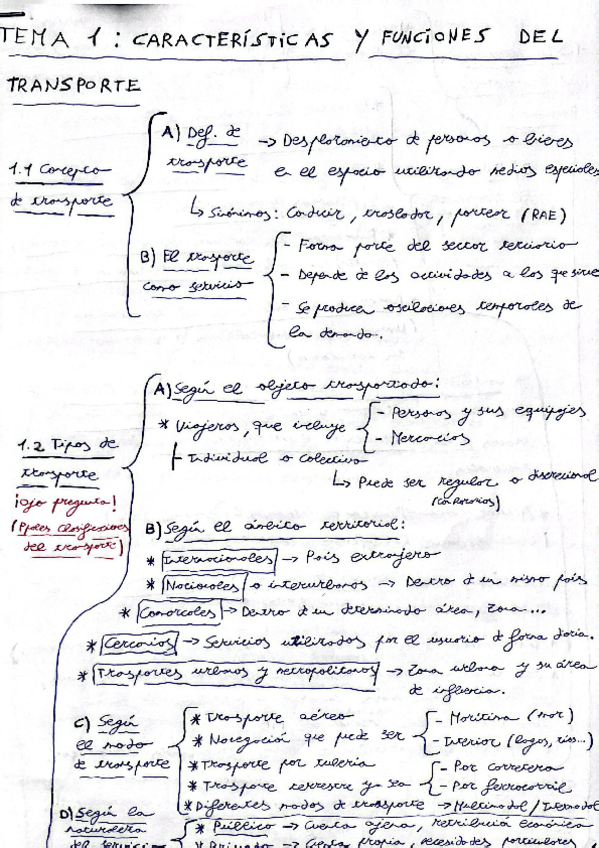 TEMA 1: CARACTERÍSTICAS Y FUNCIONES DEL
TRANSPORTE
1.1 Concepto
de transporte
A) Def. de
transporte
-> Desplazamiento de personas o bienes
en el espacio utilizando medios especiales
↳ Sinónimos: Conducir, trasladar, portear (RAE)
B) El trasporte
como servicio
- Forma parte del sector terciario
- Depende de las actividades a las que sirve
- Se producen oscilaciones temporales de
la demanda.
1.2 Tipos de
transporte
¡ojo pregunta!
(Ppales clasificaciones
del transporte)
A) Según el objeto trasportado:
* Viajeros, que incluye
- Personas y sus equipajes
- Mercancías
Individual o Colectivo
↳ Puede ser regular o discrecional
(con horarios)
B) Según el ámbito territorial:
* Internacionales -> País extranjero
* Nacionales o interurbanos -> Dentro d un mismo país
* Comarcales -> Dentro d un determinado área, zona...
* Cercanías -> Servicios utilizados por el usuario de forma diaria.
* Trasportes urbanos y metropolitanos -> Zona urbana y su área
de influencia.
C) Según
el modo
de transporte
* Trasporte aéreo
* Navegación que puede ser
- Marítima (mar)
- Interior (lagos, ríos...)
* Trasporte por tubería
* Trasporte terrestre ya sea
- Por carretera
- Por ferrocarril
* Diferentes modos de trasporte -> Multimodal / Intermodal
D) Según la
naturaleza
del servicio
* Público -> Cuenta ajena, retribución económica
* Privado -> Cuenta propia, necesidades particulares